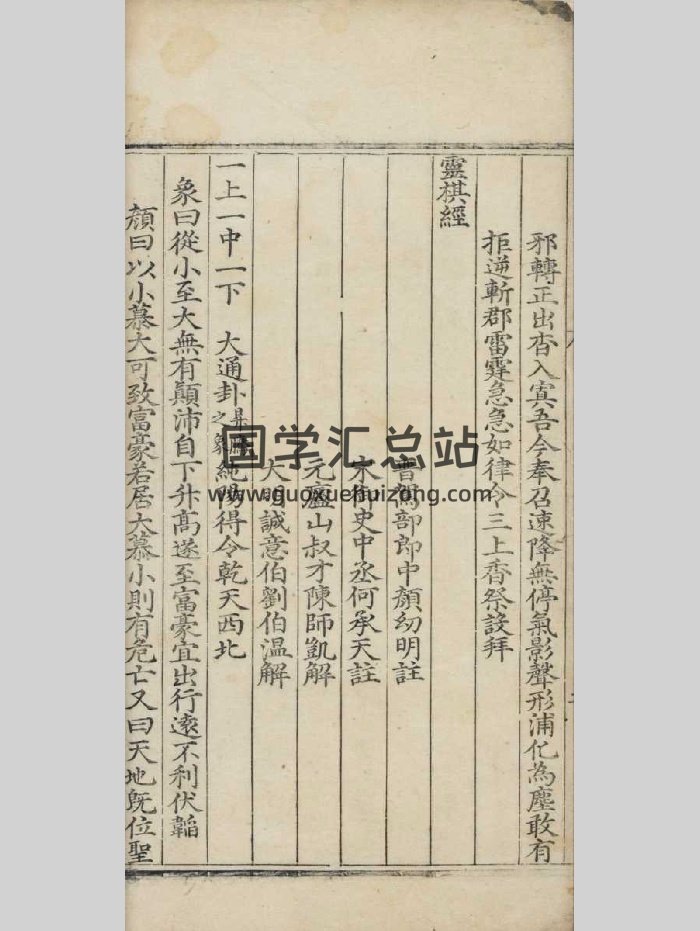 邪轉正出杳入㝠吾今奉召速降無停氣影聲形浦化為塵敢有
拒逆斬郡雷霆急急如律令三上香祭設拜
靈棋經
郎中顏幼明註
宋御史中丞何承天註
元廬山叔才陳師凱解
大明誠意伯劉伯温解
一上一中一下 大通卦 之象 純陽得令乾天西北
象曰從小至大無有顛沛自下升高遂至富豪宜出行遠不利伏韜
顏曰以小慕大可致富豪若居大慕小則有危亡又曰天地旣位聖
国学汇总站
www.guoxuehuizong.com